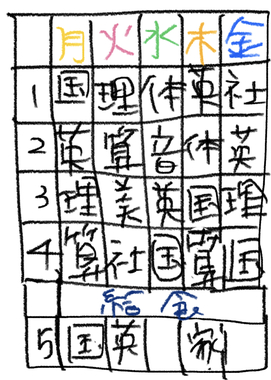 月 火 水 木 金
1 国 理 体 英 社
2 英 算 音 体 英
3 理 美 英 国 理
4 算 社 国 算 国
給食
5 国 英 家